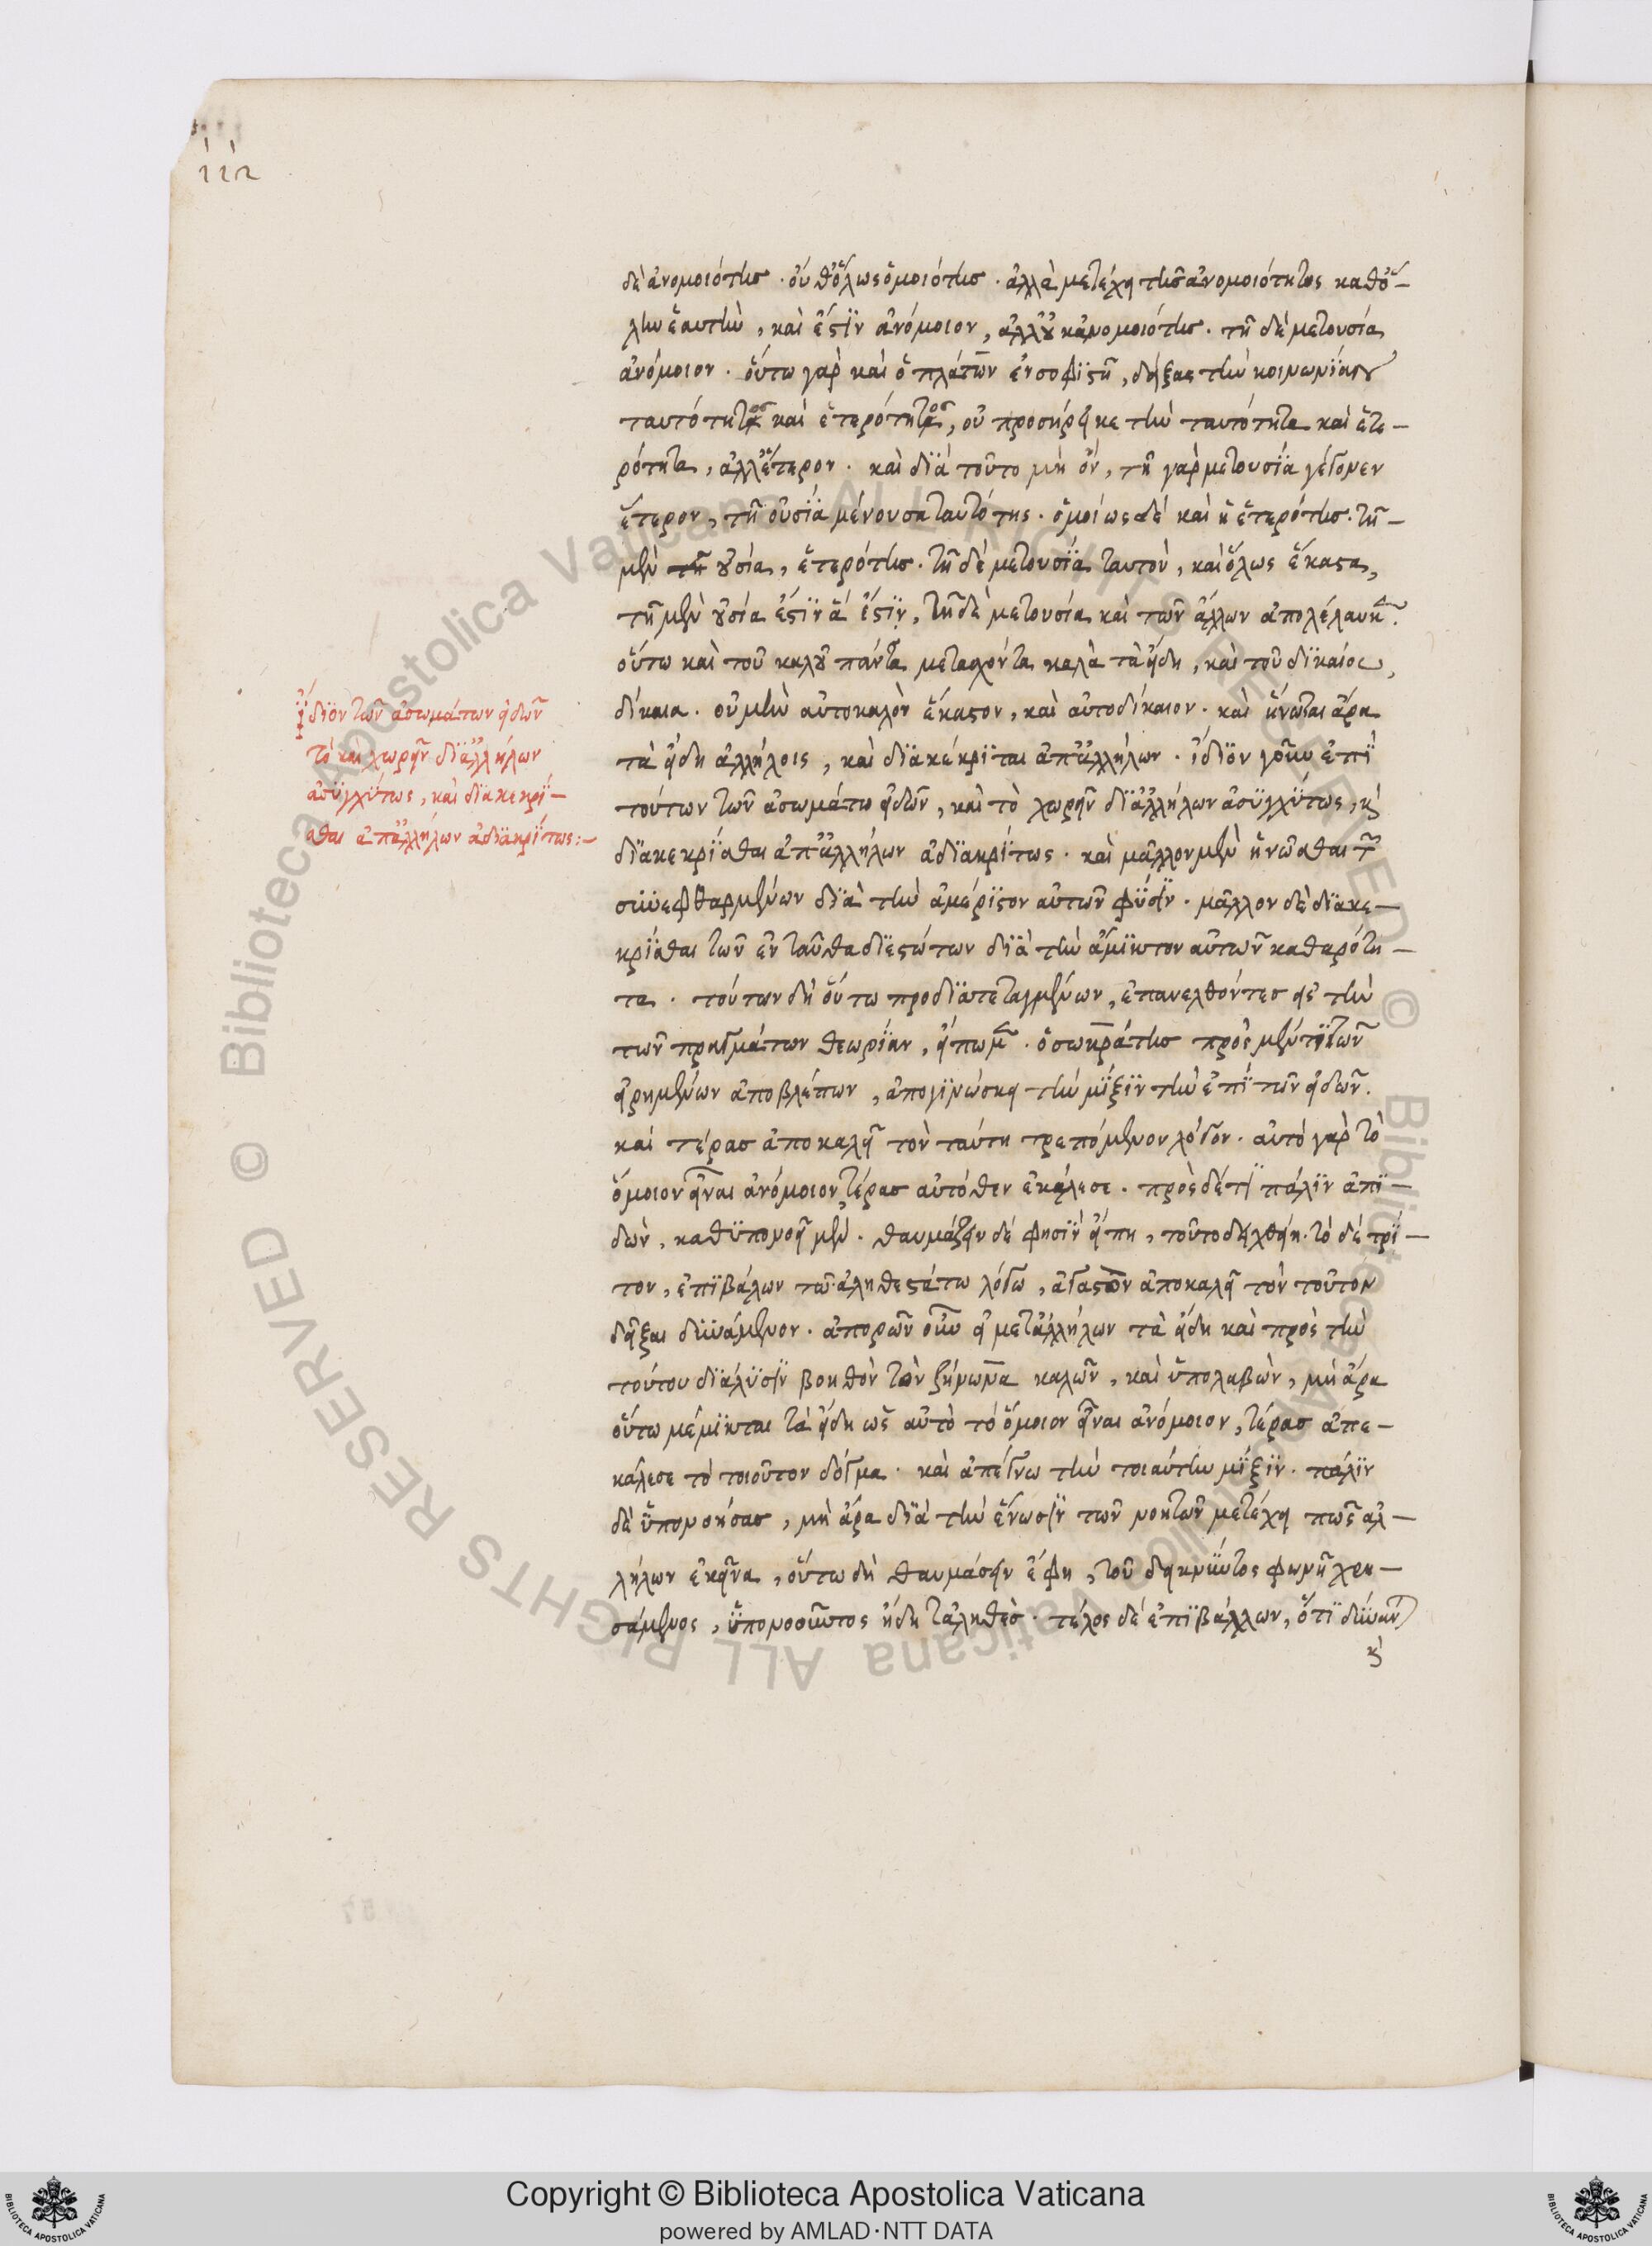 112
δὲ ἀνομοιότης · οὐ θ' ὅλως ὁμοιότης · ἀλλὰ μετέχει τῆς ἀνομοιότητος καθ' ὅ-
λην ἑαυτὴν, καὶ ἐστὶν ἀνόμοιον, ἀλλ' οὐκ ἀνομοιότης. τῆ δὲ μετουσία
ἀνόμοιον · οὕτω γὰρ καὶ ὁ πλάτων ἐν σοφιστῆ, δείξας τὴν κοινωνίαν
ταυτότητος καὶ ἑτερότητος, οὐ προσείρηκε τὴν ταυτότητα καὶ ἑτε-
ρότητα, ἀλλ' ἕτερον · καὶ διὰ τοῦτο μὴ ὂν, τῆ γὰρ μετουσία γέγονεν
ἕτερον, τῆ οὐσία μένουσα ταυτότης · ὁμοίως δὲ καὶ ἡ ἑτερότης. τῆ-
μὲν οὐσία, ἑτερότης. τῆ δὲ μετουσία ταυτὸν, καὶ ὅλως ἕκαστα,
τῆ μὲν οὐσία ἐστὶν ἅ ἐστιν, τῆ δὲ μετουσία καὶ τῶν ἄλλων ἀπολέλαυκε.
οὕτω καὶ τοῦ καλοῦ πάντα μετασχόντα καλὰ τὰ εἴδη, καὶ τοῦ δικαίου,
δίκαια. οὐ μὴν αὐτοκαλὸν ἕκαστον, καὶ αὐτοδίκαιον. καὶ ἥνωται ἄρα
τὰ εἴδη ἀλλήλοις, καὶ διακέκριται ἀπ' ἀλλήλων. ἴδιον γοῦν ἐπὶ
τούτων τῶν ἀσωμάτων εἰδῶν, καὶ τὸ χωρεῖν δι' ἀλλήλων ἀσυγχύτως, καὶ
διακεκρίσθαι ἀπ' ἀλλήλων ἀδιακρίτως. καὶ μᾶλλον μὲν ἡνῶσθαι τῶν
συνεφθαρμένων διὰ τὴν ἀμέριστον αὐτῶν φύσιν. μᾶλλον δὲ διακε-
κρίσθαι τῶν ἐνταῦθα διεστώτων διὰ τὴν ἄμικτον αὐτῶν καθαρότη-
τα. τούτων δὴ οὕτω προδιατεταγμένων, ἐπανελθόντες εἰς τὴν
τῶν πραγμάτων θεωρίαν, εἴπωμεν. ὁ σωκράτης πρὸς μέν τι τῶν
εἰρημένων ἀποβλέπων, ἀπογινώσκει τὴν μίξιν τὴν ἐπὶ τῶν εἰδῶν.
καὶ τέρας ἀποκαλεῖ τὸν ταύτη τρεπόμενον λόγον. αὐτὸ γὰρ τὸ
ὅμοιον εἶναι ἀνόμοιον, τέρας αὐτόθεν ἐκάλεσε. πρὸς δέ τι πάλιν ἀπι-
δὼν, καθυπονοεῖ μὲν. θαυμάζειν δέ φησιν εἴ πη, τοῦτο δειχθείη. τὸ δὲ τρί-
τον, ἐπιβάλων τῶ ἀληθεστάτω λόγω, ἀγαστὸν ἀποκαλεῖ τὸν τοῦτον
δεῖξαι δυνάμενον. ἀπορῶν οὖν εἰ μετ' ἀλλήλων τὰ εἴδη καὶ πρὸς τὴν
τούτου διάλυσιν βοηθὸν τὸν ζήνωνα καλῶν, καὶ ὑπολαβὼν, μὴ ἄρα
οὕτω μέμικται τὰ εἴδη ὡς αὐτὸ τὸ ὅμοιον εἶναι ἀνόμοιον, τέρας ἀπε-
κάλεσε τὸ τοιοῦτον δόγμα. καὶ ἀπέγνω τὴν τοιαύτην μίξιν. πάλιν
δὲ ὑπονοήσας, μὴ ἄρα διὰ τὴν ἕνωσιν τῶν νοητῶν μετέχει πως ἀλ-
λήλων ἐκεῖνα, οὕτω δὴ θαυμάσειν ἔφη, τοῦ δεικνύντος φωνῆ χρη-
σάμενος, ὑπονοοῦντος ἤδη τἀληθὲς. τέλος δὲ ἐπιβάλλων, ὅτι δύναν
καὶ
ἴδιον τῶν ἀσωμάτων εἰδῶν
τὸ καὶ χωρεῖν δι' ἀλλήλων
ἀσυγχύτως, καὶ διακεκρί-
σθαι ἀπ' ἀλλήλων ἀδιακρίτως:-
© Biblioteca Apostolica Vaticana ALL RIGHTS RESERVED © Biblioteca Apostolica Vaticana ALL RIGHTS RESERVED
Copyright © Biblioteca Apostolica Vaticana
powered by AMLAD·NTT DATA
BIBLIOTECA APOSTOLICA VATICANA
BIBLIOTECA APOSTOLICA VATICANA